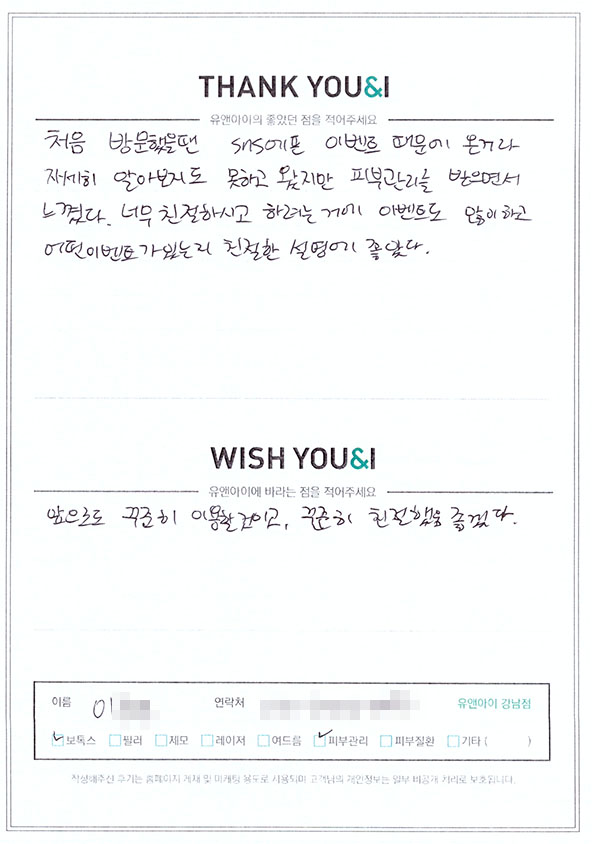 THANK YOU&I
유앤아이의 좋았던 점을 적어주세요
처음 방문했을땐 SNS에 뜬 이벤트 때문에 온거라
자세히 알아보지도 못하고 왔지만 피부관리를 받으면서
느꼈다. 너무 친절하시고 하려는 거에 이벤트도 많이하고
어떤이벤트가있는지 친절한 설명에 좋았다.
WISH YOU&I
유앤아이에 바라는 점을 적어주세요
앞으로도 꾸준히 이용할것이고, 꾸준히 친절했음 좋겠다.
이름 이 연락처 유앤아이 강남점
보톡스 필러 제모 레이저 여드름 피부관리 피부질환 기타 ( )
작성해주신 후기는 홈페이지 게재 및 마케팅 용도로 사용되며 고객님의 개인정보는 일부 비공개 처리로 보호됩니다.